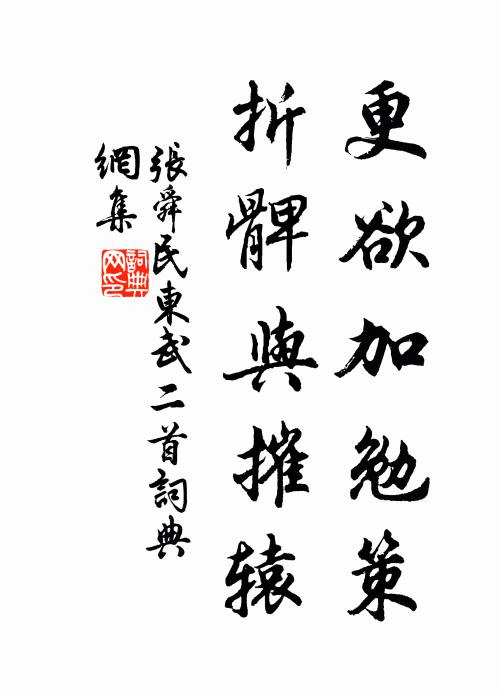 更欲加勉策
折髀與摧辕
張舜民東武二首詞典
網集
詞典
网印